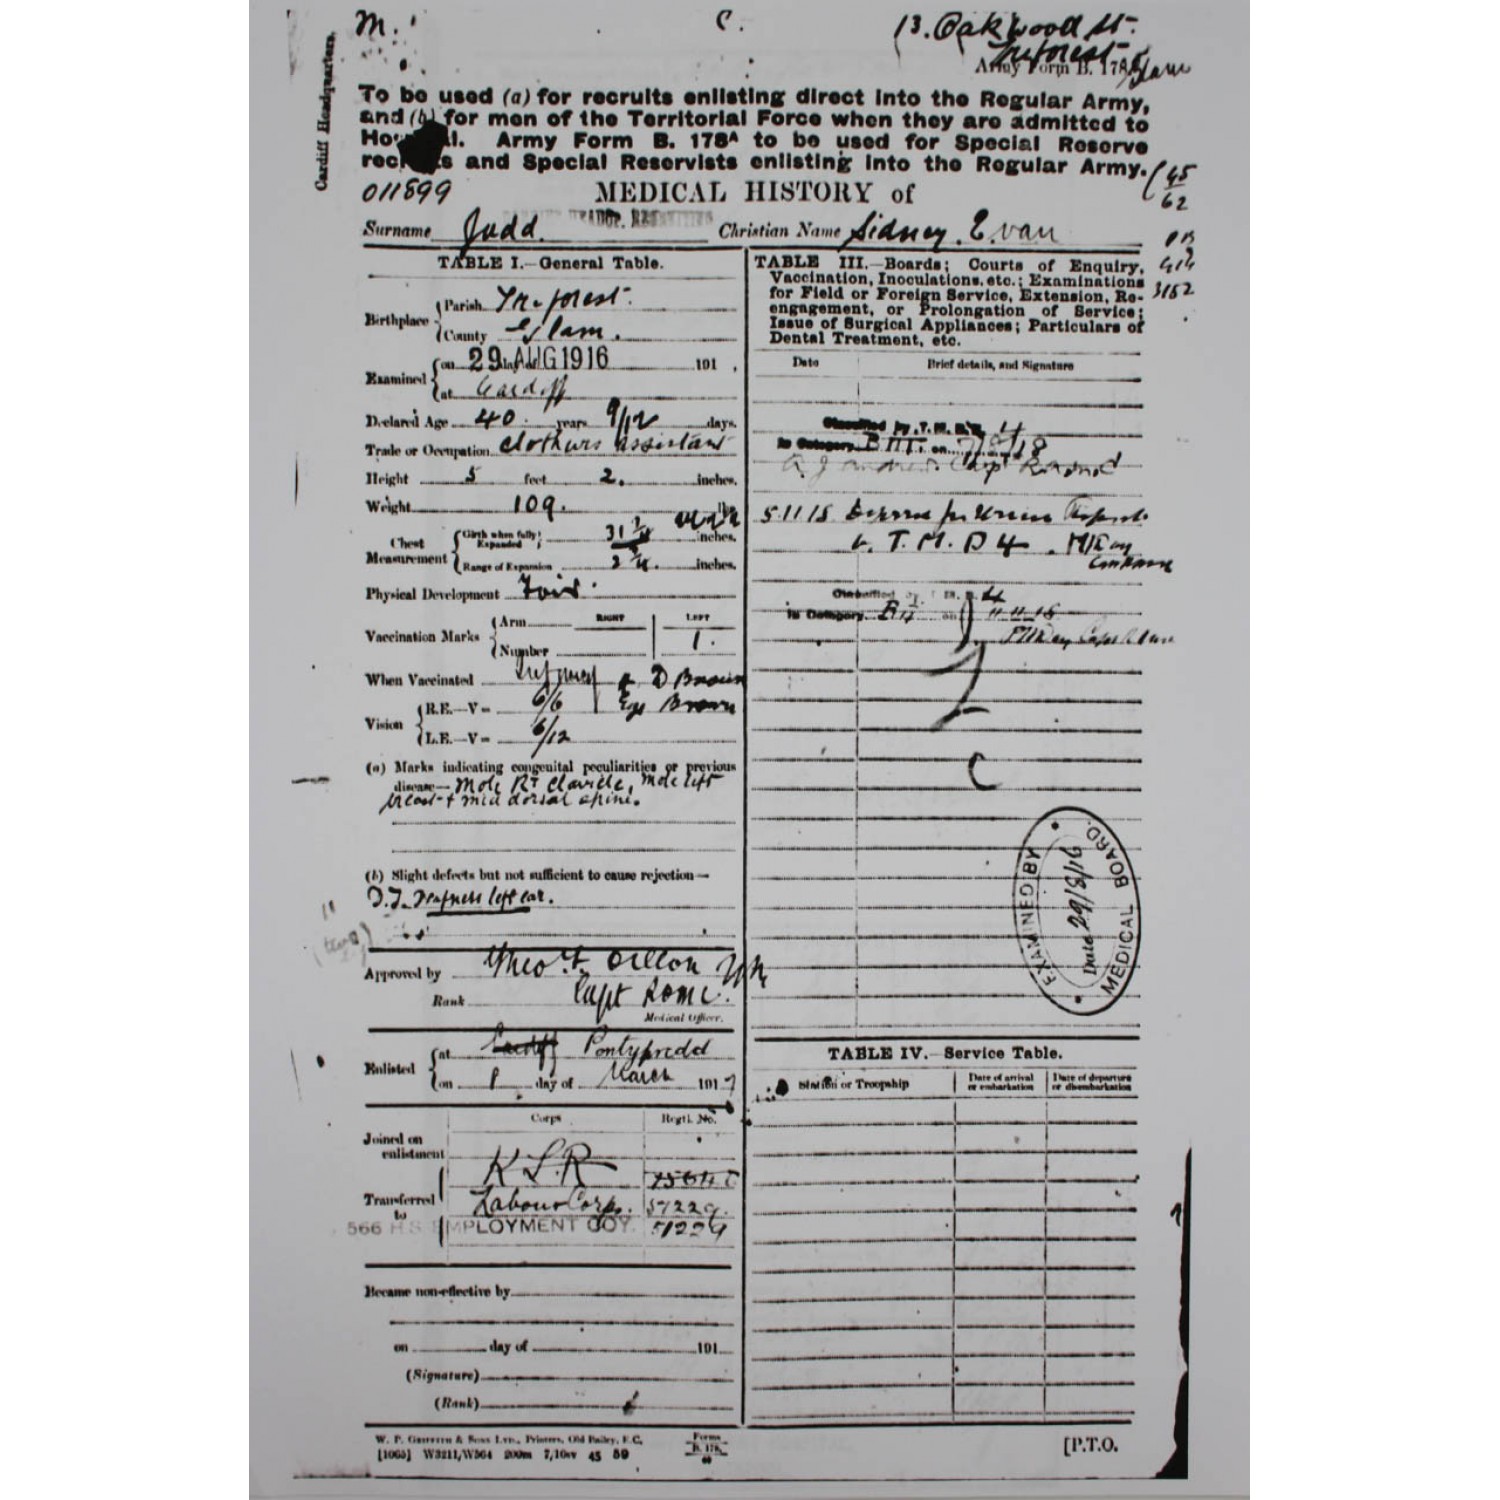 M.
C.
13. Oakwood St.
Treforest
Glam
Army Form B. 178
Cardiff Headquarters.
To be used (a) for recruits enlisting direct into the Regular Army,
and (b) for men of the Territorial Force when they are admitted to
Hospital. Army Form B. 178A to be used for Special Reserve
recruits and Special Reservists enlisting into the Regular Army.
011899
MEDICAL HISTORY of
65
62
Surname Judd. Christian Name Sidney. Evan
414
3182
TABLE I.—General Table.
Birthplace
Parish Treforest.
County Glam.
Examined
on 29 AUG 1916 191 .
at Cardiff
Declared Age 40. years 9/12 days.
Trade or Occupation Clothiers assistant
Height 5 feet 2. inches.
Weight 109. lbs.
Chest Measurement
Girth when fully Expanded 31 inches.
Range of Expansion 2 inches.
Physical Development Fair.
Vaccination Marks
Arm RIGHT LEFT
Number 1.
When Vaccinated Infancy
Brown
Vision
R.E.—V= 6/6 Eyes Brown
L.E.—V= 6/12
(a) Marks indicating congenital peculiarities or previous
disease— Mole Rt Clavicle, mole left
breast + mid dorsal spine.
(b) Slight defects but not sufficient to cause rejection—
D.T. Deafness left ear.
Approved by Theo. F. Dillon
Rank Capt RAMC.
Medical Officer.
Enlisted
at Cardiff Pontypridd
on 8 day of March 1917
Corps Regtl. No.
Joined on enlistment
K L R
Transferred to
Labour Corps. 51229.
566 H.S. EMPLOYMENT COY. 51229
Became non-effective by
on day of 191
(Signature)
(Rank)
TABLE III.—Boards; Courts of Enquiry,
Vaccination, Inoculations, etc.; Examinations
for Field or Foreign Service, Extension, Re-
engagement, or Prolongation of Service;
Issue of Surgical Appliances; Particulars of
Dental Treatment, etc.
Date Brief details, and Signature
Classified by T. M. B. 4
in Category BIII. on 18
Capt
5.11.18
T. M. B 4.
Classified by T. M. B. 4
in Category on 11.11.18
C
EXAMINED BY
Date 29/8/16
MEDICAL BOARD.
TABLE IV.—Service Table.
Station or Troopship
Date of arrival or embarkation
Date of departure or disembarkation
W. P. Griffith & Sons Ltd., Printers, Old Bailey, E.C.
[1065] W3211/W564 200m 7/16 45 59
Forms
B. 178.
[P.T.O.